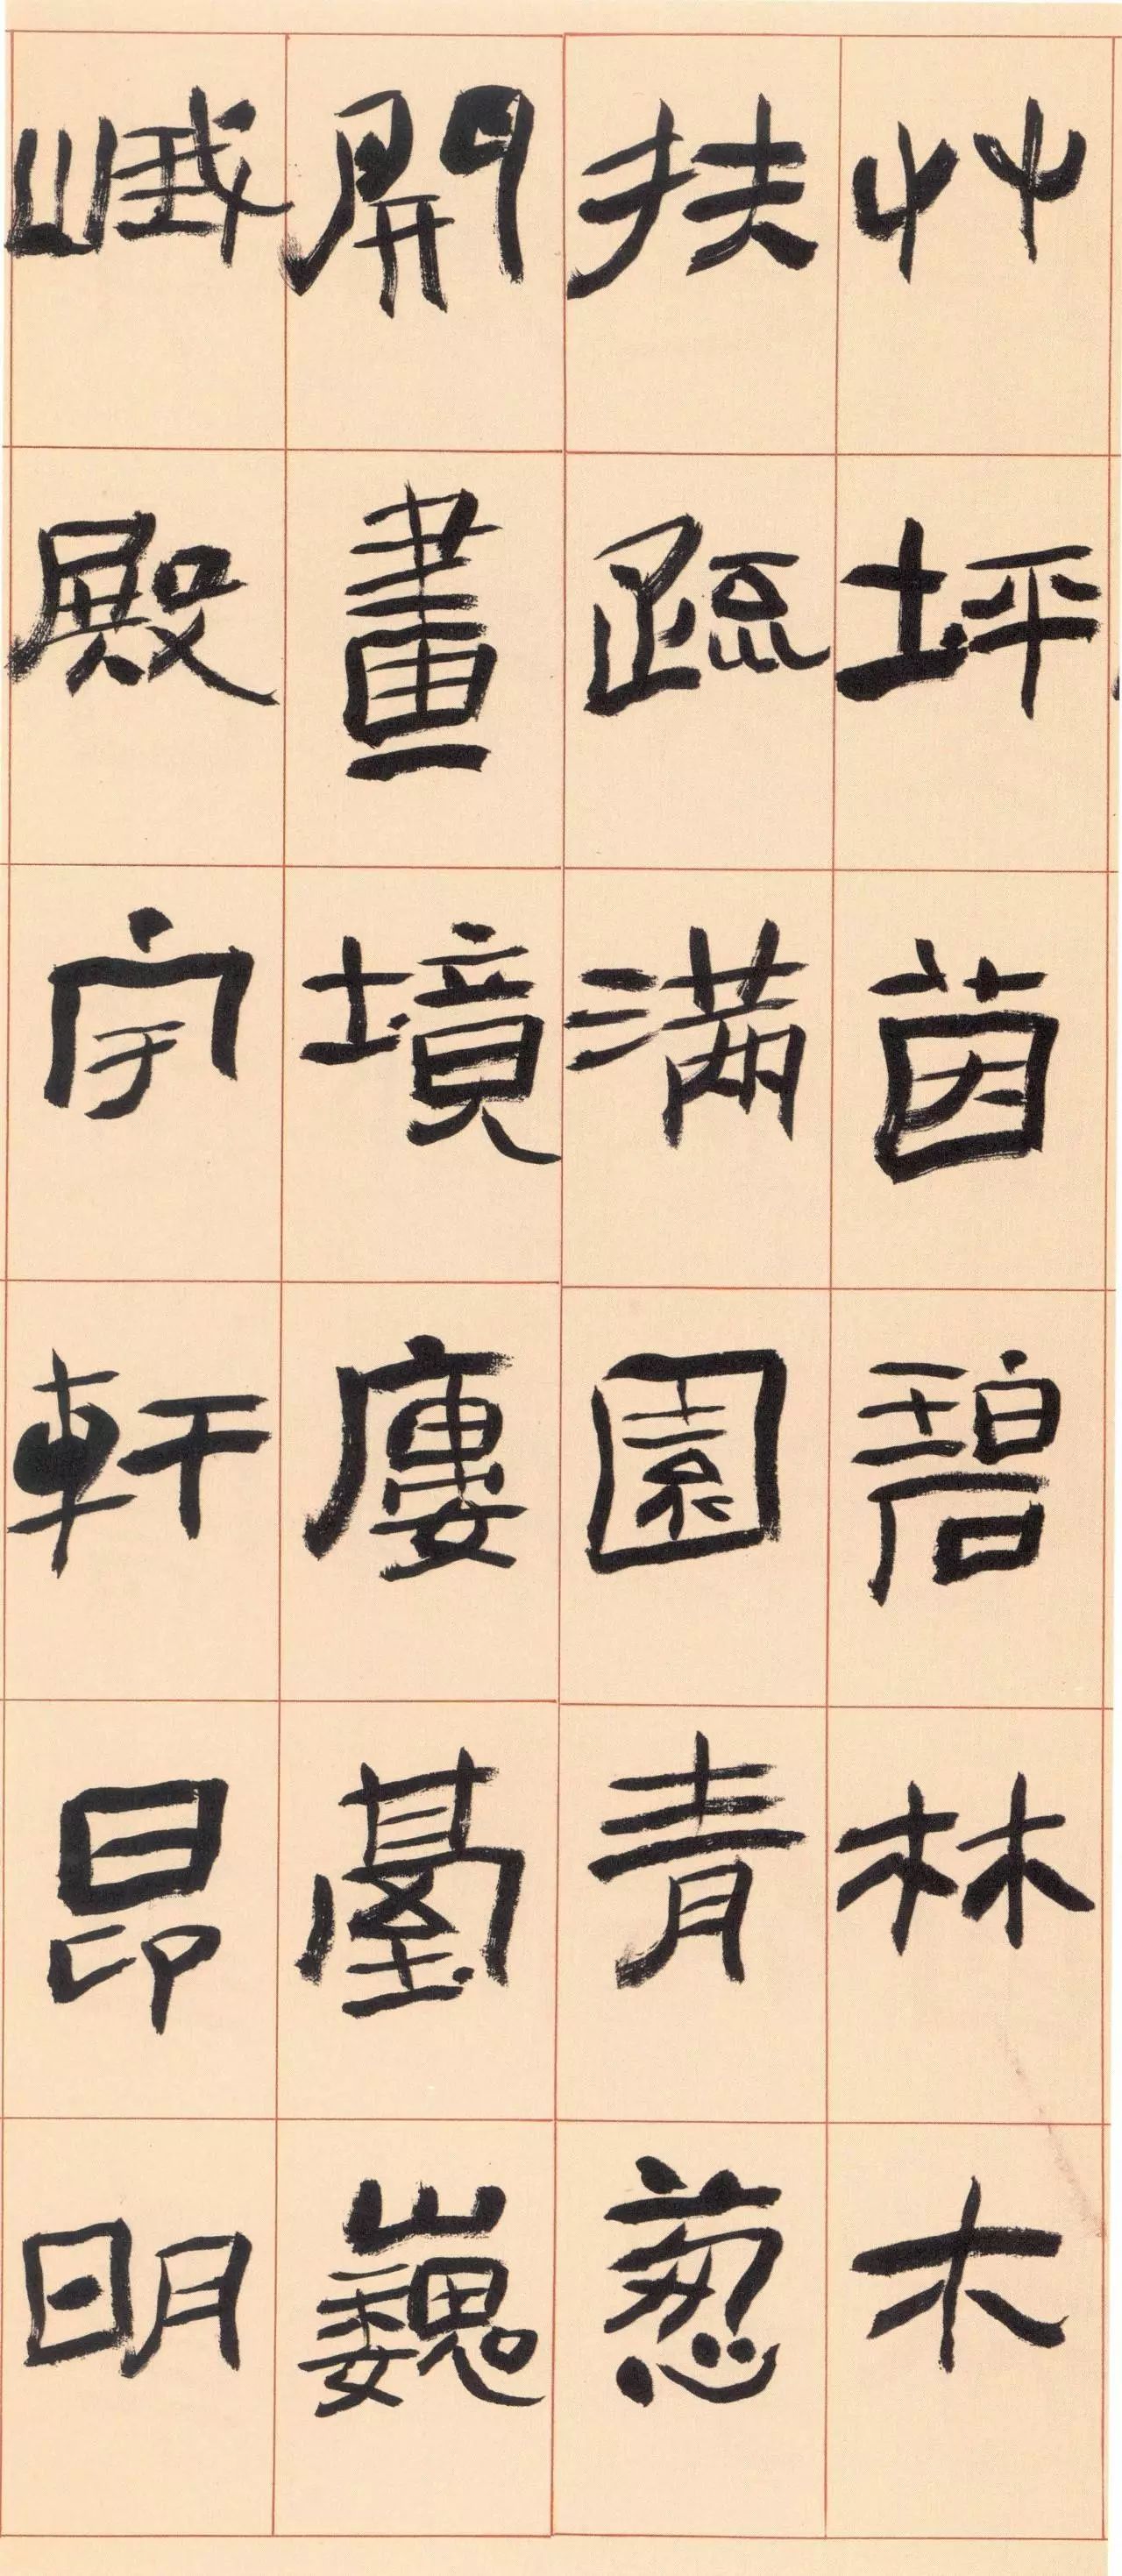 艸坪茵碧林木
扶疏满園青葱
開畫境廔臺巍
峨殿宇軒昂明